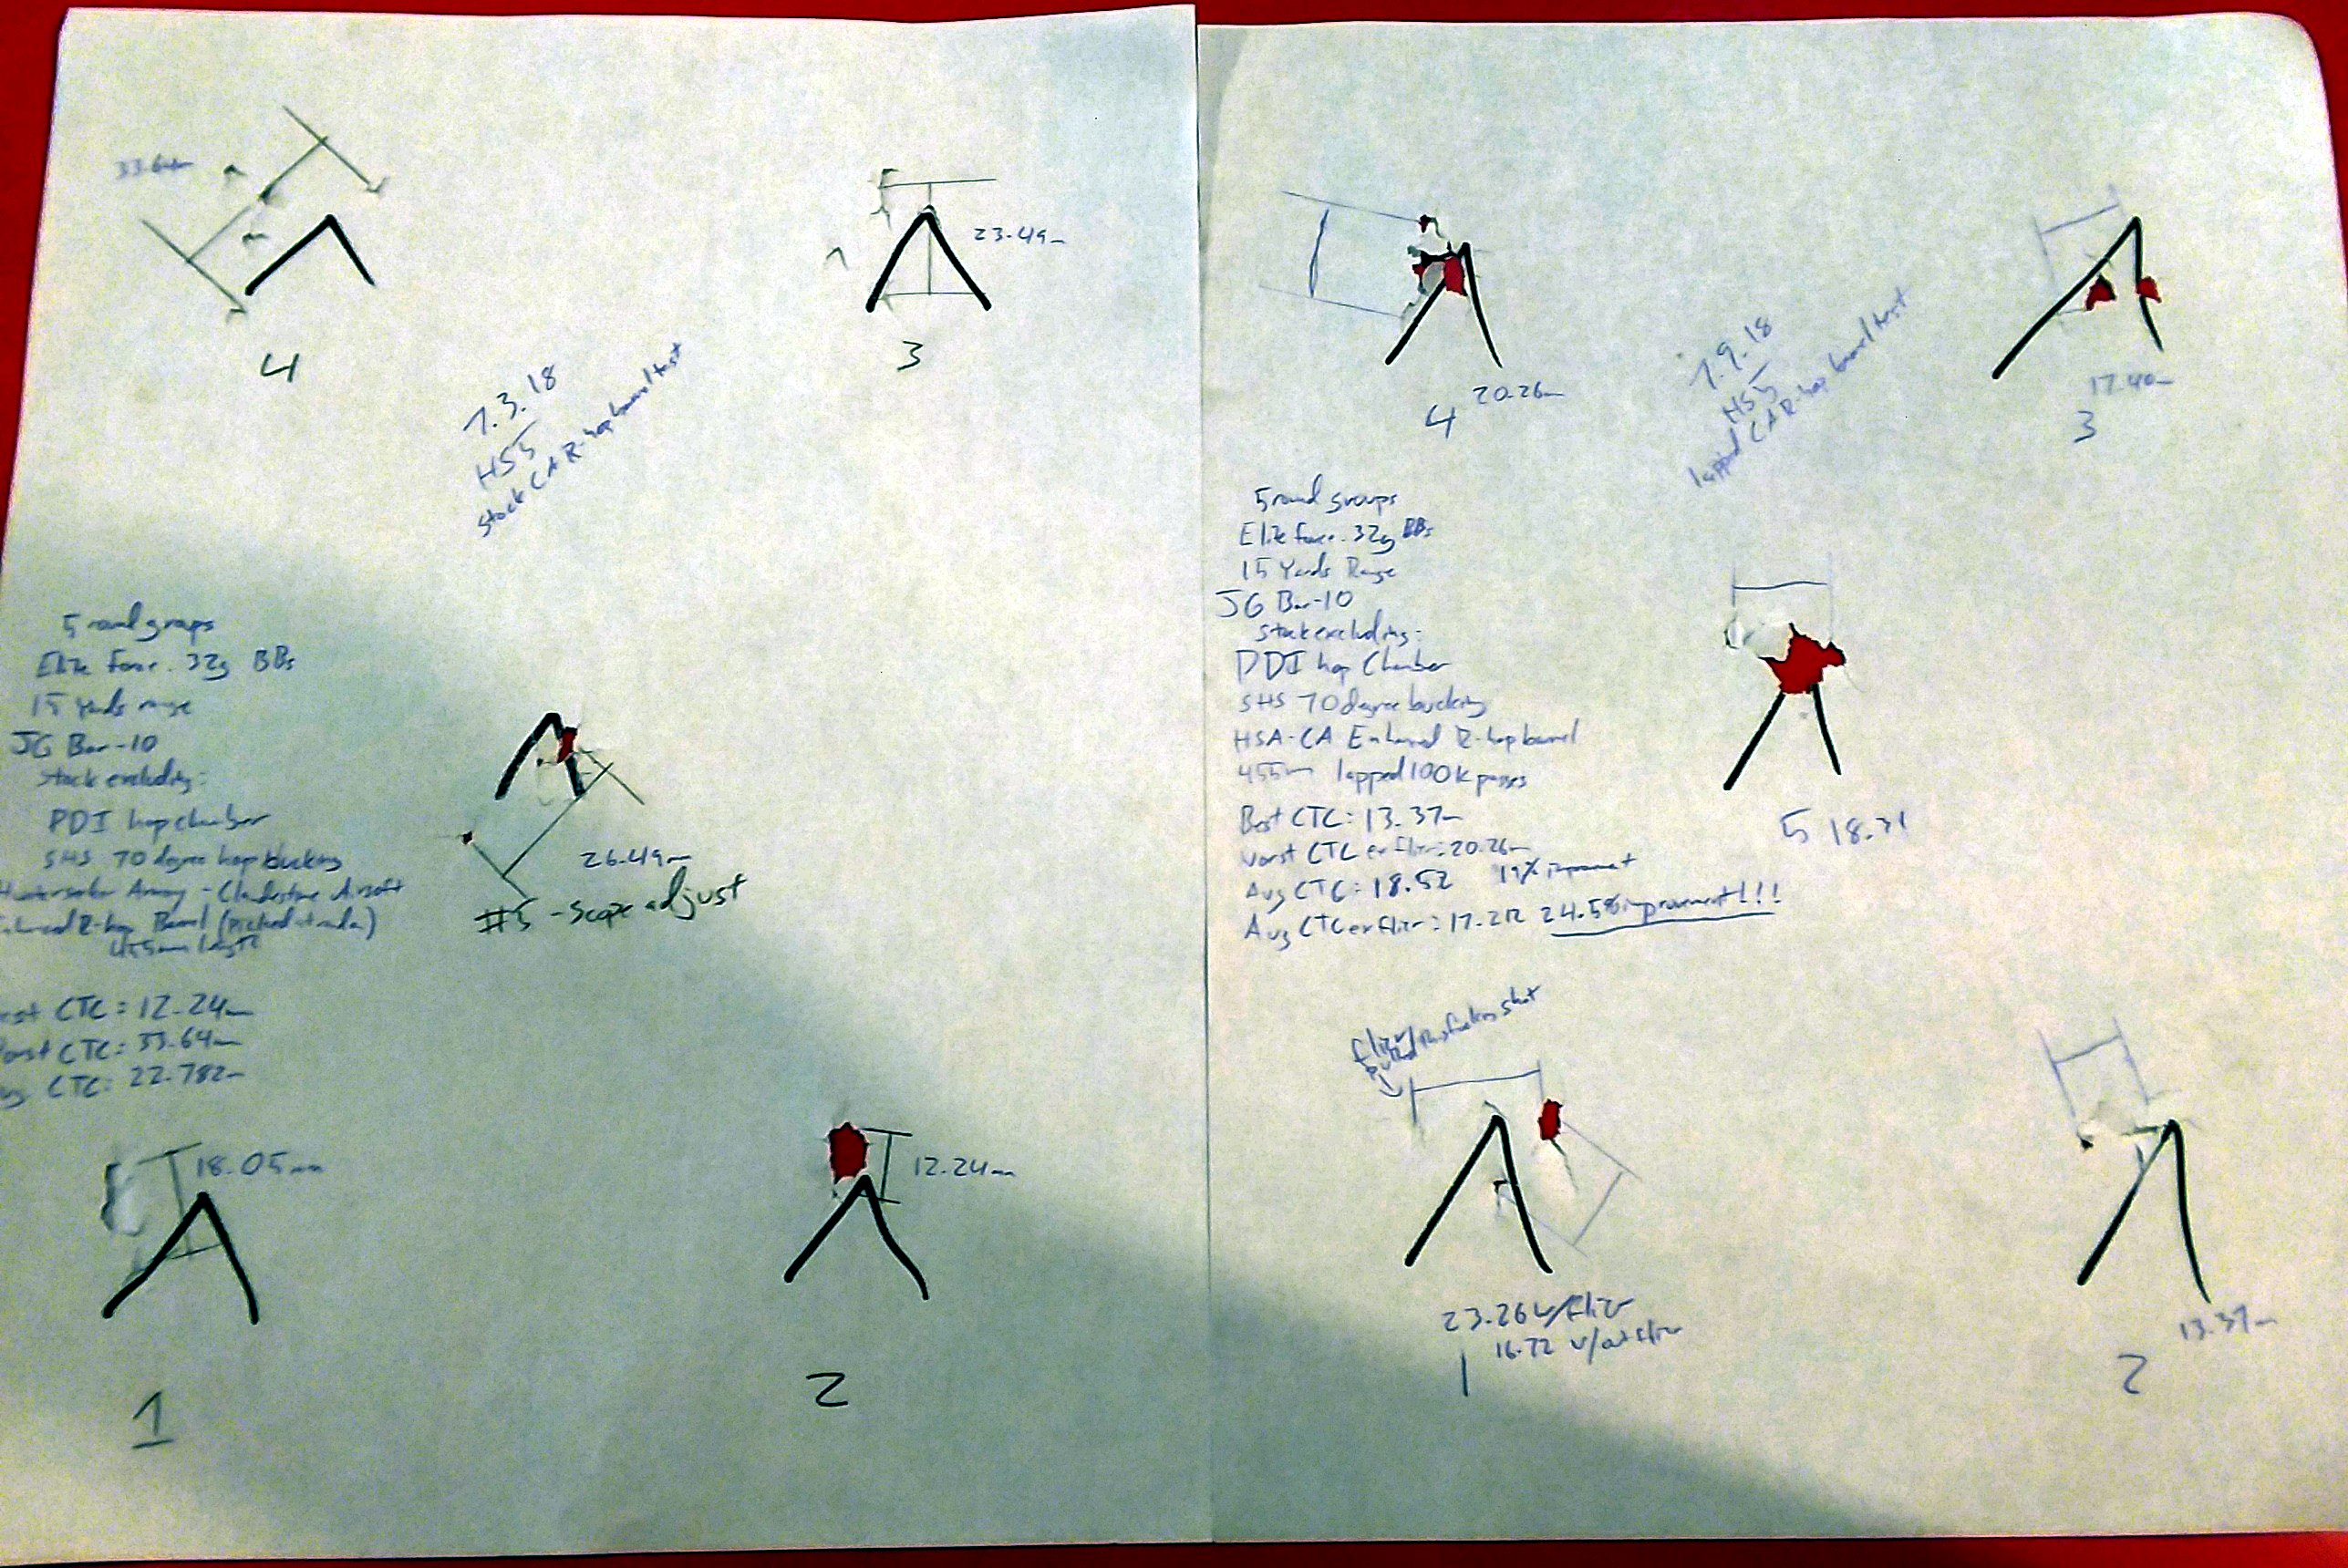 33.64m
4
23.49m
3
7.3.18
HS5
stock CA R-hop barrel test
5 round groups
Elite Force .32g BBs
15 Yards range
JG Bar-10
stock excluding:
PDI hop chamber
SHS 70 degree hop bucking
Army - Clandestine Airsoft
R-hop Barrel (Picked at random)
455mm length
CTC = 12.24m
CTC: 33.64m
CTC: 22.782m
26.49m
#5 - Scope adjust
18.05mm
1
12.24m
2
20.26m
4
7.9.18
HS5
lapped CA R-hop barrel test
17.40m
3
5 round groups
Elite Force .32g BBs
15 Yards Range
JG Bar-10
stock excluding:
PDI hop Chamber
SHS 70 degree bucking
HSA-CA Enhanced R-hop barrel
455mm lapped 100k passes
Best CTC: 13.37m
Worst CTC ex flier: 20.26m
Avg CTC: 18.52 19% improvement
Avg CTC ex flier: 17.212 24.5% improvement!!!
5 18.31
flier
shot
23.26 w/flier
16.72 w/out flier
1
13.37m
2